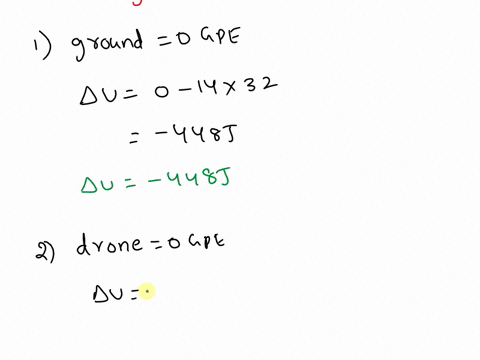 1) ground = 0 GPE
ΔU = 0 - 14 × 32
= -448J
ΔU = -448J
2) drone = 0 GPE
ΔU =